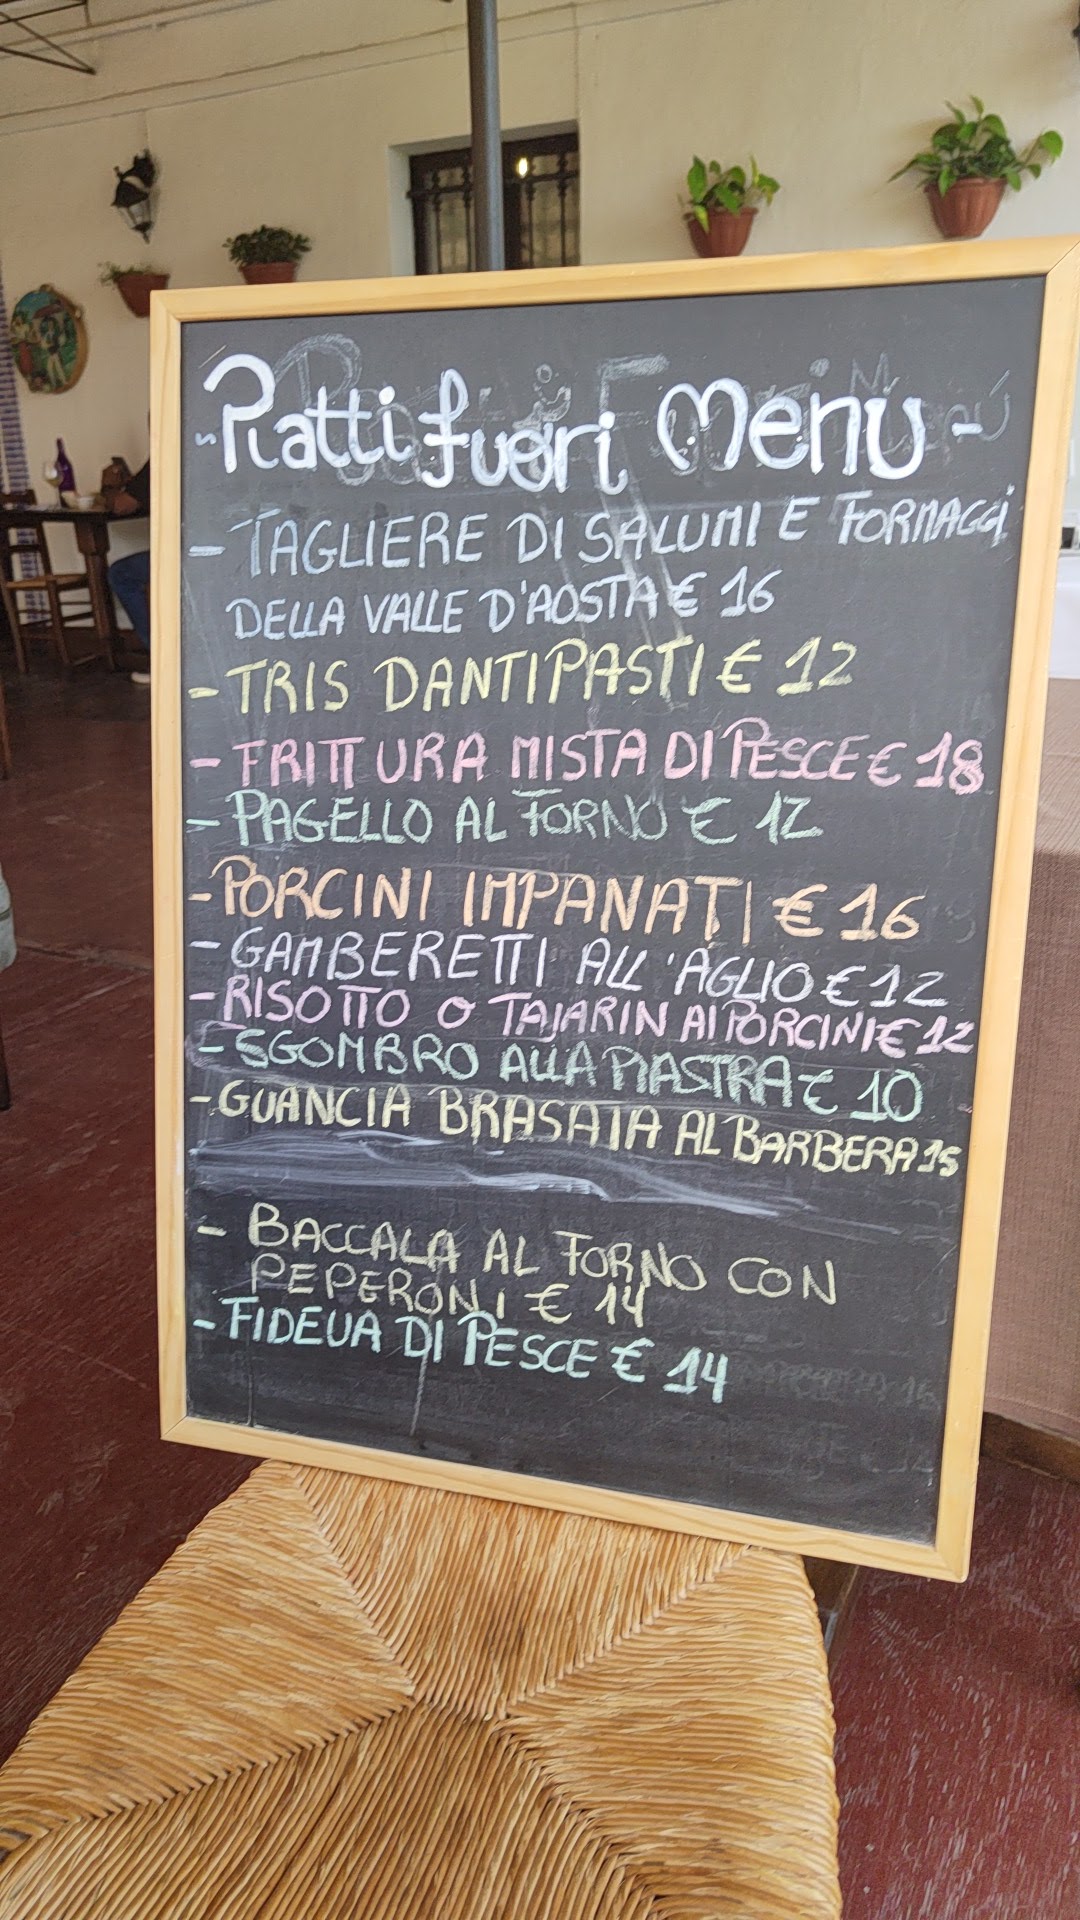 - Piatti fuori Menù -
- TAGLIERE DI SALUMI E FORMAGGI
DELLA VALLE D'AOSTA € 16
- TRIS D'ANTIPASTI € 12
- FRITTURA MISTA DI PESCE € 18
- PAGELLO AL FORNO € 12
- PORCINI IMPANATI € 16
- GAMBERETTI ALL'AGLIO € 12
- RISOTTO O TAJARIN AI PORCINI € 12
- SGOMBRO ALLA PIASTRA € 10
- GUANCIA BRASATA AL BARBERA 15
- BACCALA AL FORNO CON
PEPERONI € 14
- FIDEUA DI PESCE € 14